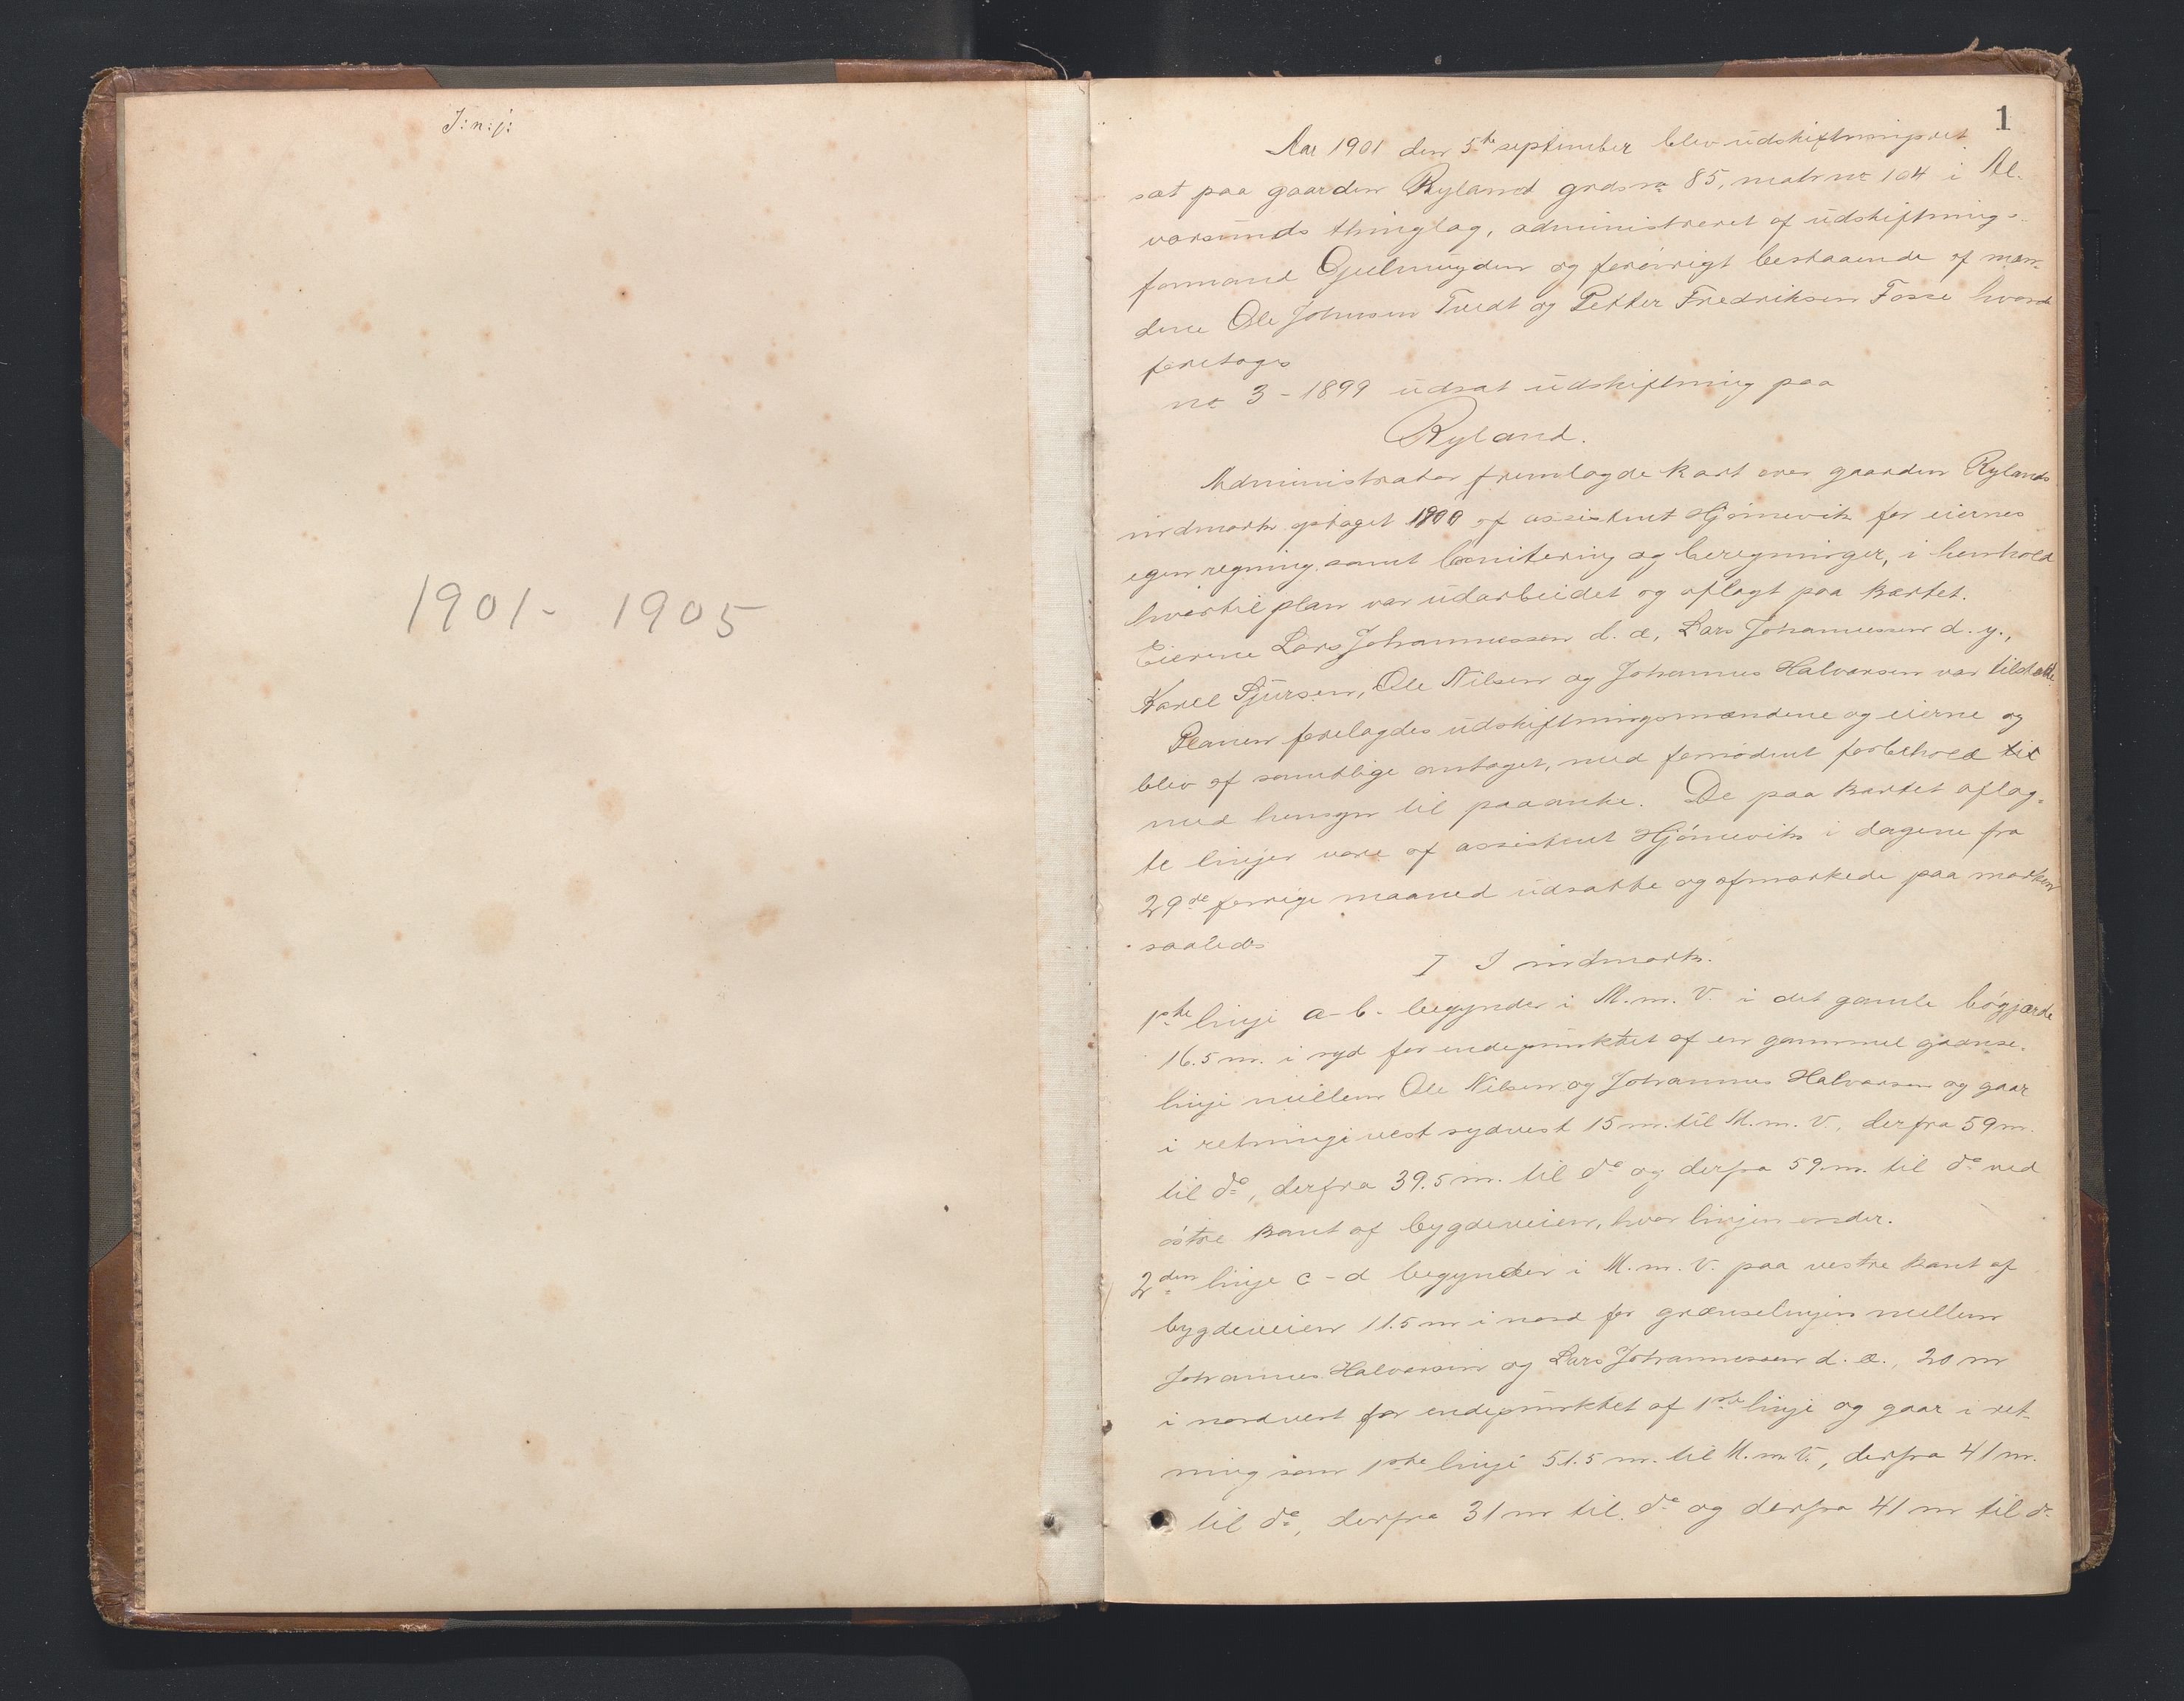 J:n:j:
1901 - 1905
1
Aar 1901 den 5te september blev udskiftningsret
sat paa gaarden Ryland grdsno 85, matr no 104 i Al-
varsunds thinglag, administreret af udskiftnings-
formand Gjelmuyden og forøvrigt bestaaende af mæn-
dene Ole Johnsen Tvedt og Petter Fredriksen Fosse hvorde
foretoges
no 3 - 1899 udsat udskiftning paa
Ryland.
Administrator fremlagde kart over gaarden Rylands
indmark optaget 1900 af assistent Hjørnevik for eiernes
egen regning samt bonitering og beregninger, i henhold
hvortil plan var udarbeidet og aflagt paa kartet.
Eierne Lars Johannessen d. æ, Lars Johannessen d. y.,
Karel Sjursen, Ole Nilsen og Johannes Halvorsen var tilstede.
Planen forelagdes udskiftningsmændene og eierne og
blev af samtlige antaget, med fornødent forbehold til
med hensyn til paaanke. De paa kartet aflag-
te linjer vare af assistent Hjørnevik i dagene fra
29de forrige maaned udsatte og afmærkede paa marken
saaledes
I I indmark.
1ste linje a-b. begynder i M. m. V. i det gamle bøgjærde
16.5 m. i syd for endepunktet af en gammel grænse-
linje mellem Ole Nilsen og Johannes Halvorsen og gaar
i retning i vest sydvest 15 m. til M. m. V., derfra 59 m.
til do, derfra 39.5 m. til do og derfra 59 m. til do ved
østre kant af bygdeveien, hvor linjen ender.
2den linje c-d begynder i M. m. V. paa vestre kant af
bygdeveien 11.5 m i nord for grænselinjen mellem
Johannes Halvorsen og Lars Johannessen d. æ., 20 m
i nordvest for endepunktet af 1ste linje og gaar i ret-
ning som 1ste linje 51.5 m. til M. m. V., derfra 41 m.
til do, derfra 31 m til do og derfra 41 m til do